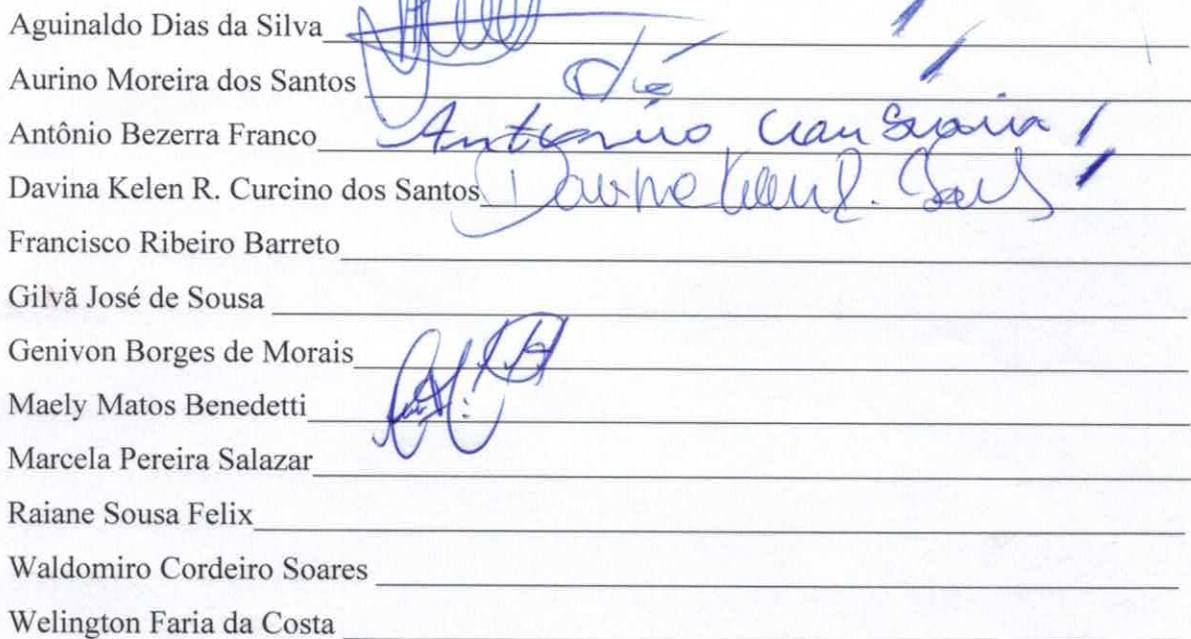 Aguinaldo Dias da Silva
Aurino Moreira dos Santos Dié
Antônio Bezerra Franco Antonio
Davina Kelen R. Curcino dos Santos
Francisco Ribeiro Barreto
Gilvã José de Sousa
Genivon Borges de Morais
Maely Matos Benedetti
Marcela Pereira Salazar
Raiane Sousa Felix
Waldomiro Cordeiro Soares
Welington Faria da Costa